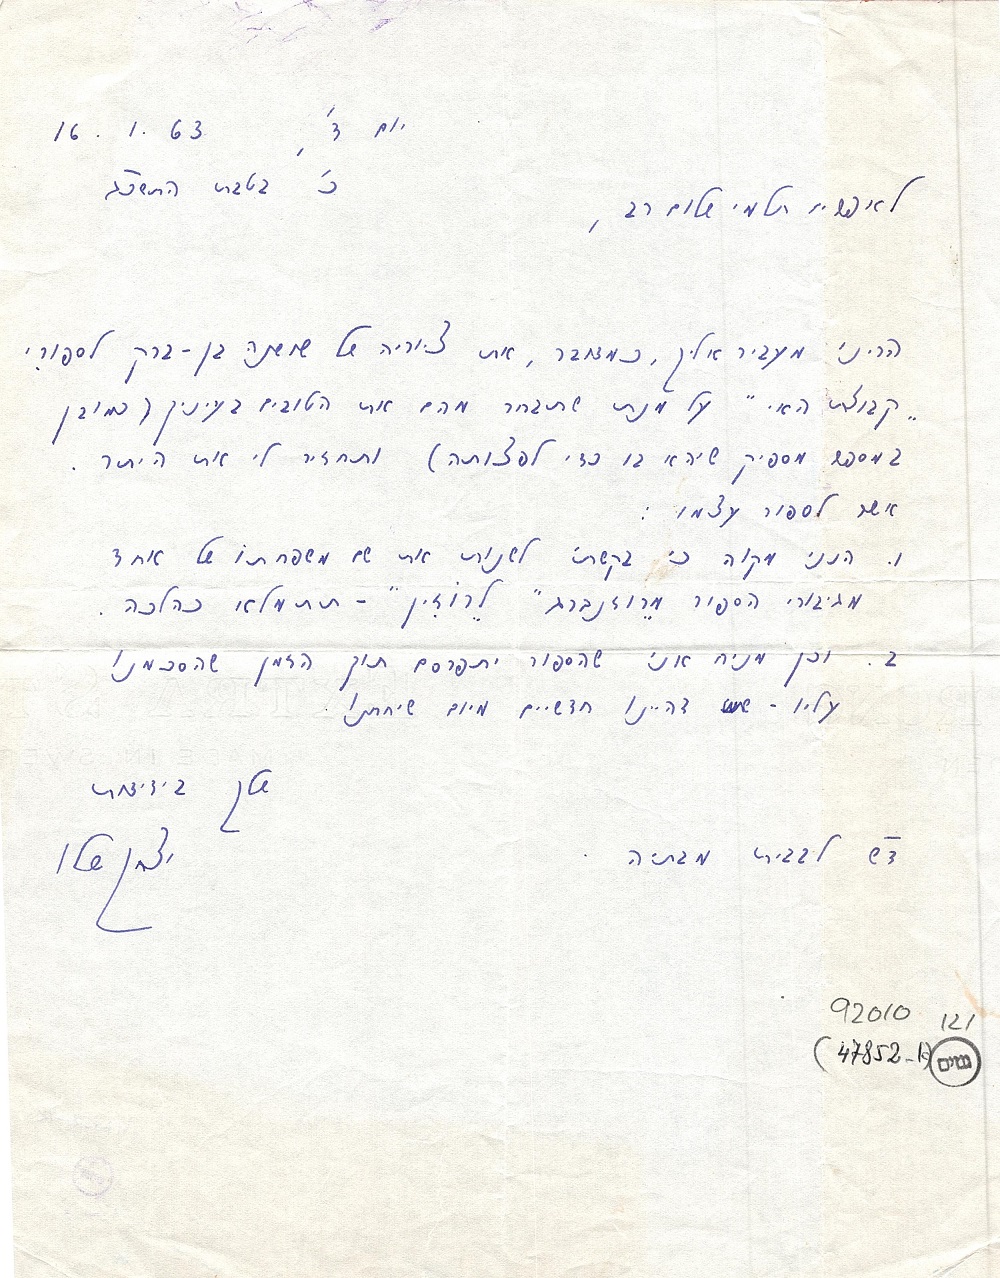 יום ד', 16.1.63
כ' בטבת התשכ"ג
לאפשים תלמי שלום רב,
הריני מעביר אליך, כמדובר, את ציוריה של שושנה בן-ברק לספורי
„קבוצת האי" על מנת שתבחר מהם את הטובים בעיניך (כמובן
במספר מספיק שיהא בו כדי לפצותה) ותחזיר לי את היתר.
אשר לספור עצמו:
1. הנני מקוה כי בקשתי לשנות את שם משפחתו של אחד
מגיבורי הספור מרוזנברג" לרוזין" - תתמלא כהלכה.
2. וכן מניח אני שהספור יתפרסם תוך הזמן שהסכמנו
עליו - דהיינו חדשיים מיום שיחתנו.
שלך בידידות
יצחק שלו
ד"ש לבבית מבתיה.
92010 121
(47852-א)